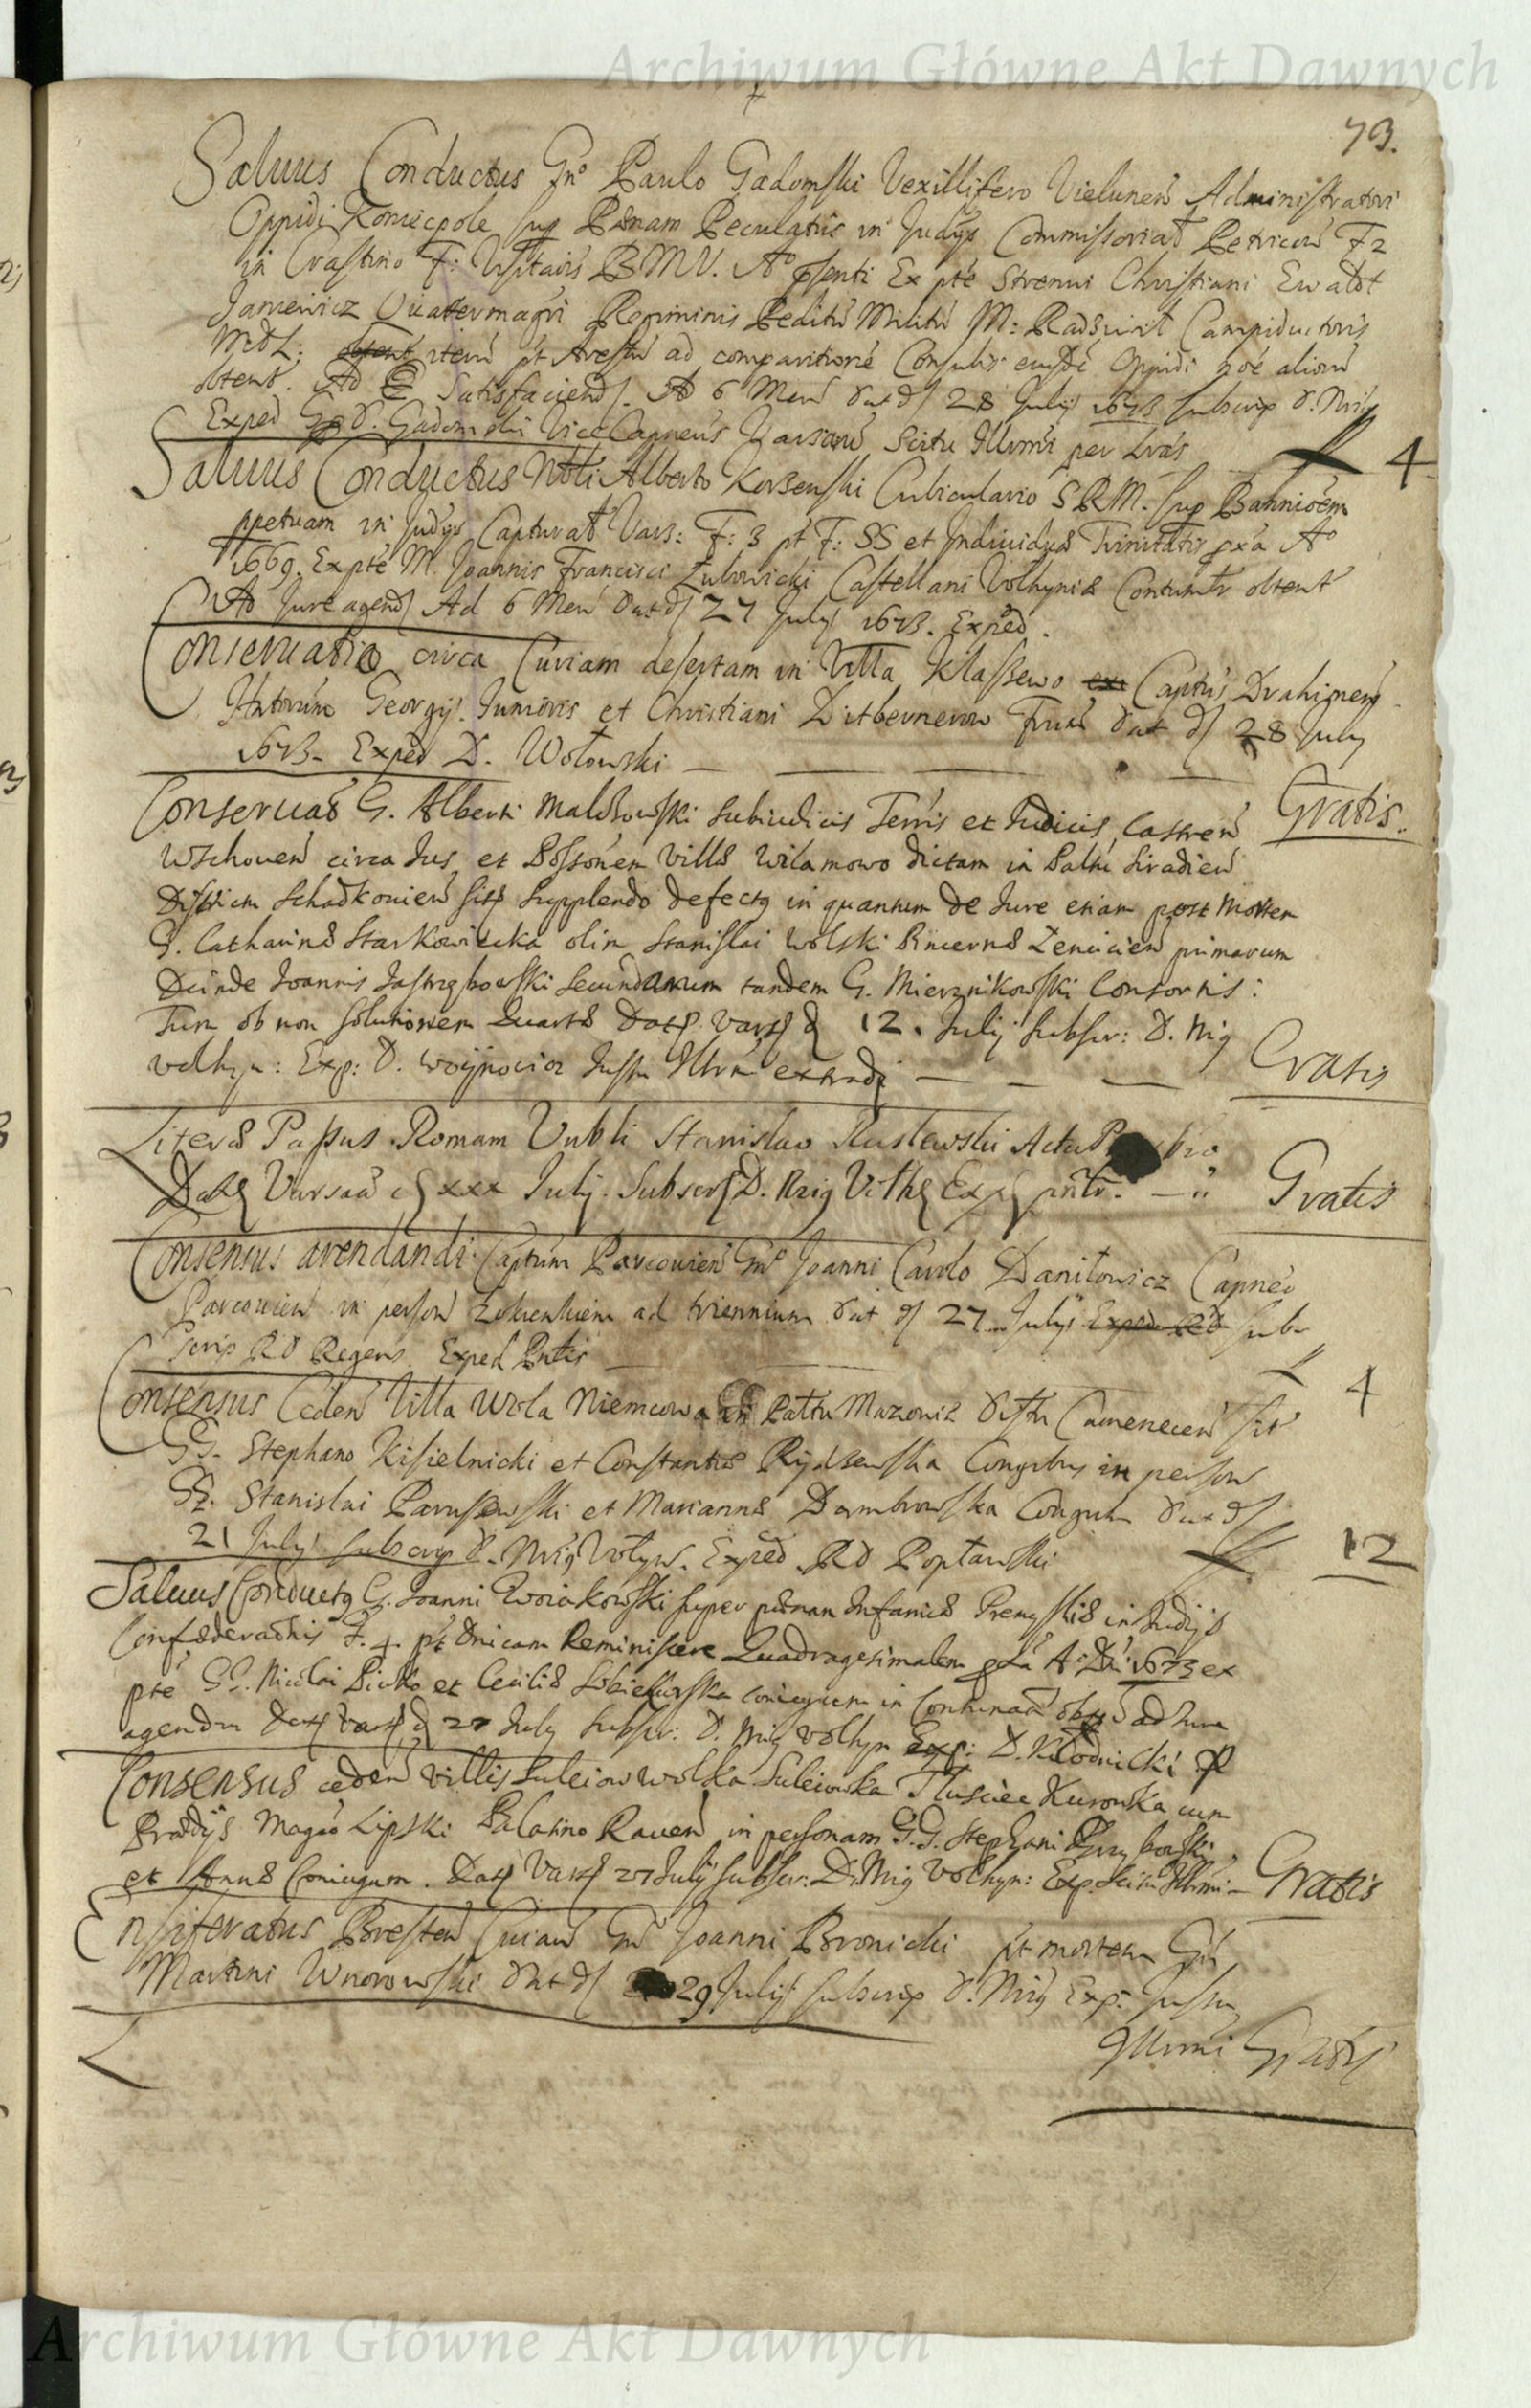 Archiwum Główne Akt Dawnych
73.
Salvus Conductus Gn° Paulo Gadomski Vexillifero Vielunen Administratori
Oppidi Koniecpole sup Pænam Peculatus in Judys Commissoriat Petricov F 2
in Crastino F: Vsitais BMV. A° psenti Ex pte Strenui Christiani Ewaldt
Jancewicz Quatermagri Regiminis Peditu Militu M: Radziwil Campiductoris
MDL: item pt Arestu ad comparitione Consulis eiusde Oppidi noe alioru
obtent. Ad Satisfaciend. Ad 6 Men Dat d 28 July 1673 subscrip D. Mrig
Exped G D. Gadomski Vice Capneus Varsavi Scitu Illrmi per Lras
4
Salvus Conductus Nbli Alberto Korzenski Cubiculario SRM. sup Bannioem
ppetuam in Judys Capturat Vars: F: 3 pt F: SS et Individuæ Trinitatis pxa A°
1669. Ex pte M. Joannis Francisci Lubowicki Castellani Volhyniæ Contumtr obtent
Ad Jure agend Ad 6 Men Dat d 27 July 1673. Exped.
Conservatio circa Curiam desertam in Villa Klassewo Captus Drahimen
Hntorum Georgy Junioris et Christiani Ditbernerow Frum dat d 28 July
1673. Exped D. Wołowski
Gratis.
Conservao G. Alberti Malchowski Subiudicis Terris et Judicis Castren
Wschoven circa Jus et Possonem Villæ Wilamowo dictam in Paltu Siradien
Districtu Schadkovien sitg supplendo defectg in quantum de Jure etiam post Mortem
G. Catharinæ Starkowiecka olim Stanislai Wolski Pincernæ Lencicien primarum
Deinde Joannis Jastrzębowski secundarum tandem G. Mierznikowski Consortis:
Tum ob non solutionem Quartæ Datg Vars d 12. Julij subscr: D. Mig
Volhyn: Exp: D. Woynowicz Jussu Illrmi extradi
Gratis
Literæ Passus Romam Vnbli Stanislao Actu
Datg Varsav d xxx Julij. Subscr D. Mrig Volh Exp pntr.
Gratis
Consensus arendandi Captum Parcovien Gn° Joanni Carolo Daniłowicz Capneo
Parcovien in person ad triennium dat d 27 July Exped RD Sub
scrip RD Regens. Exped Pntis
4
Consensus Ceden Villa Wola Niemcowa in Paltu Mazoviæ distu Camenecen sit
GG. Stephano Kisielnicki et Constantiæ Rydzewska Congibus in person
GG. Stanislai Parussewski et Mariannæ Dembrowska Congum dat d
21 July subscrip D. Mrig Volyn. Exped RD Popławski
12
Salvus Conductg G. Joanni Gwiakowski super pænam Infamiæ Premysliæ in Judijs
Confæderationis F. 4. pt Dnicam Reminiscere Quadragesimalem pxa A° Dni 1673 ex
pte GG. Nicolai Piwko et Ceciliæ Sobiekurska coniugum in Contumaa obtt ad Jure
agendu Datg Vars d 27 July subscr: D. Mig Volhyn Exp: D. Kłodnicki
Consensus ceden villis Suleiow Wolka Suleiowska Tłusciec Kurowska cum
Prædijs Magco Lipski Palatino Raven in personam G.G. Stephani Przyborski
et Annæ Coniugum. Datg Vars 27 Julij subscr: D. Mig Volhyn: Exp. Scitu Illrmi Gratis
Ensiferatus Bresten Cuiav Gn° Joanni Bronicki pt mortem Gn
Martini Wnorowski dat d 29 July subscrip D. Mrig Exp. Jussu
Illrmi Gratis
Archiwum Główne Akt Dawnych